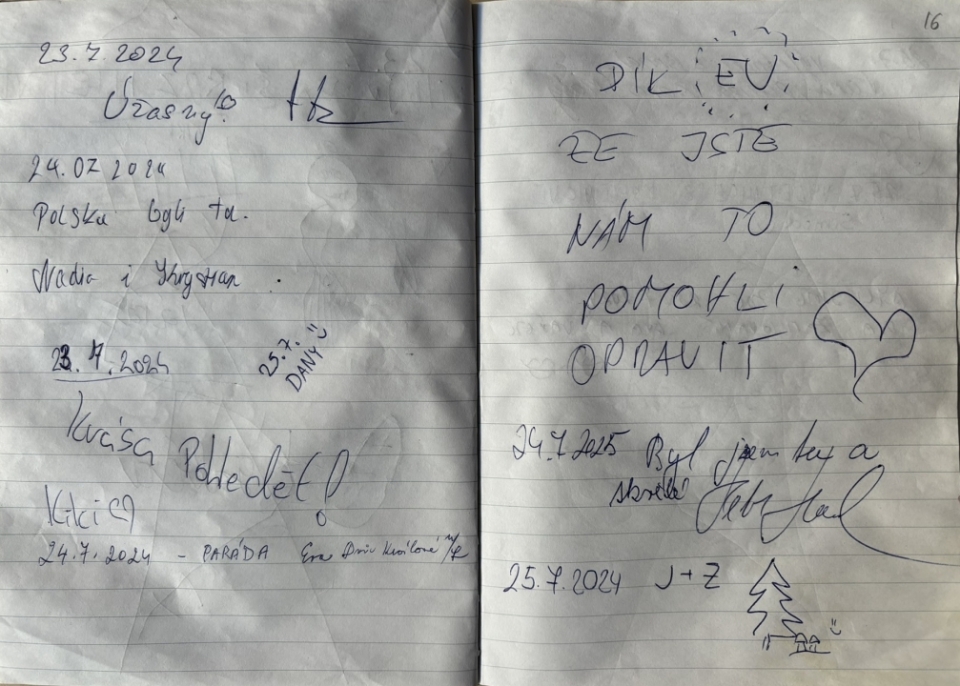 23.7.2024
Úžasný!
24.07 2024
Polska byli tu.
Nadia i Krystian
23.7.2024
25.7.
DANY
Krása Pohledět!
Kiki
24.7.2024 - PARÁDA Eva Dvůr Králové n/L
16
DÍK EU
ZE JSTE
NÁM TO
POMOHLI
OPRAVIT
24.7.2025 Byl jsem tu a
25.7.2024 J+Z